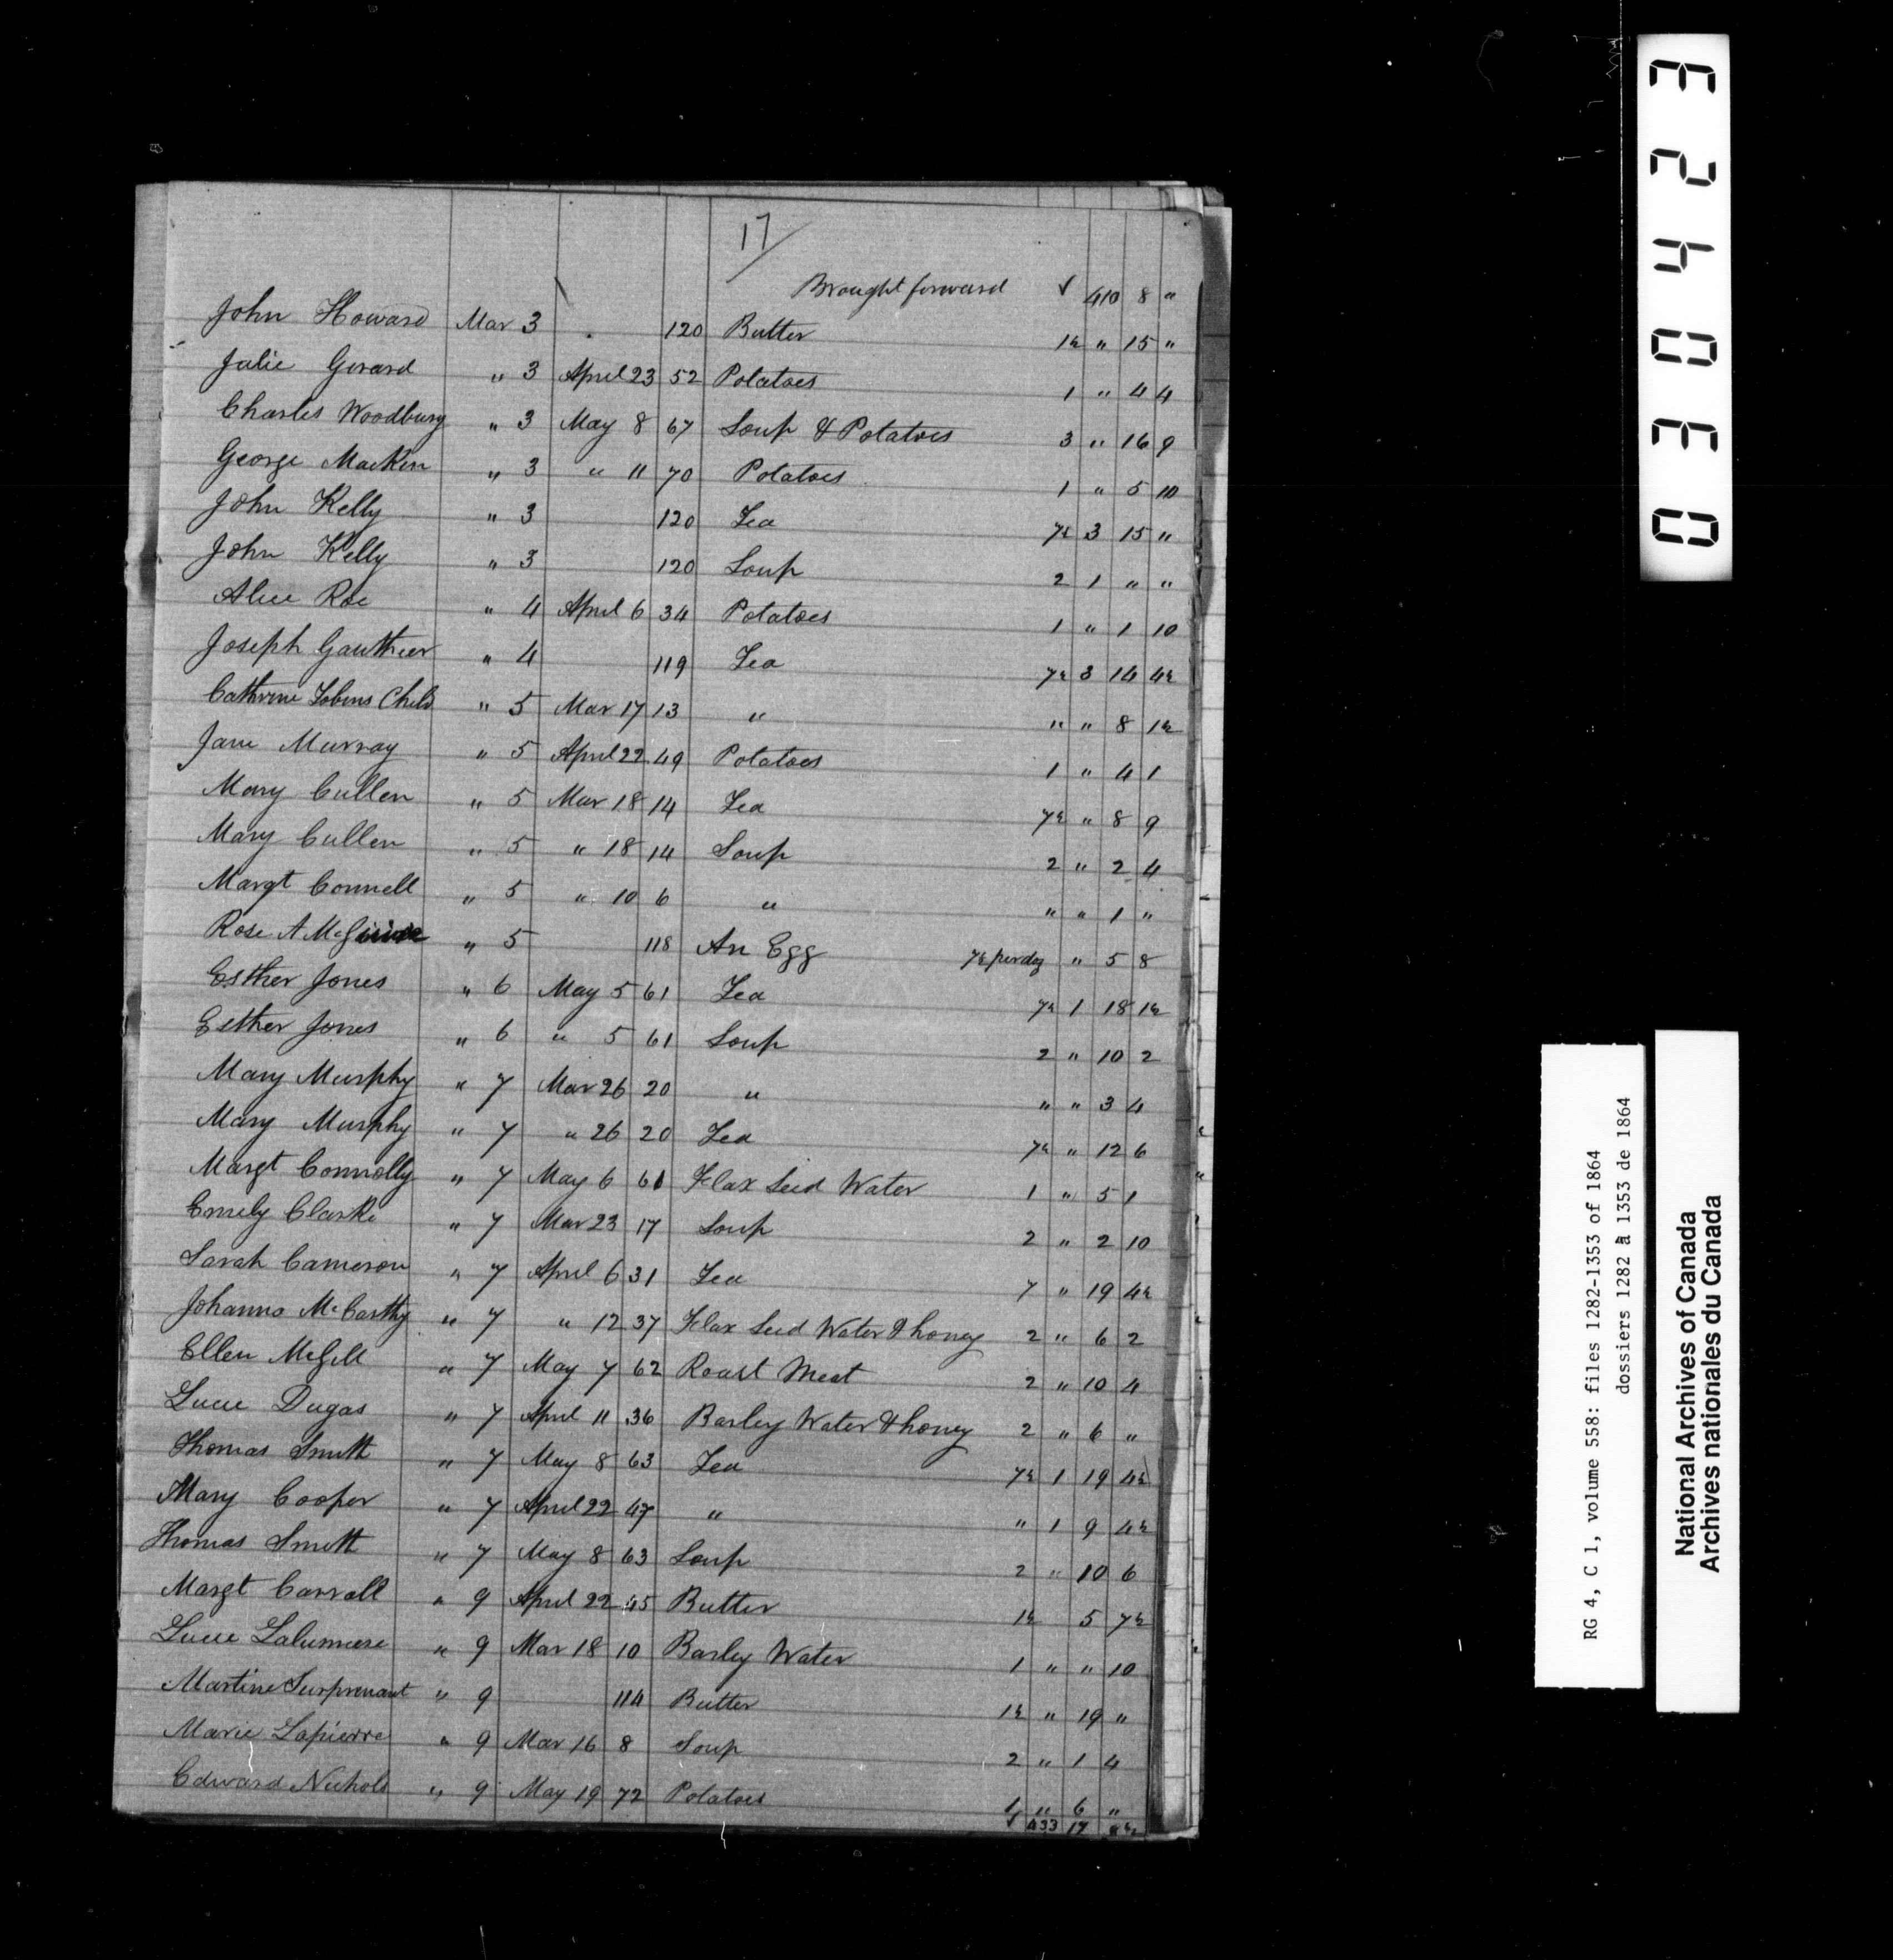 17/
Brought forward ✓ 410 8 "
John Howard Mar 3 120 Butter 1½ " 15 "
Julie Gerard " 3 April 23 52 Potatoes 1 " 4 4
Charles Woodbury " 3 May 8 67 Soup & Potatoes 3 " 16 9
George Macken " 3 " 11 70 Potatoes 1 " 5 10
John Kelly " 3 120 Tea 7½ 3 15 "
John Kelly " 3 120 Soup 2 1 " "
Alice Roe " 4 April 6 34 Potatoes 1 " 1 10
Joseph Gauthier " 4 119 Tea 7½ 3 14 4½
Cathrine Tobins Child " 5 Mar 17 13 " " " 8 1½
Jane Murray " 5 April 22 49 Potatoes 1 " 4 1
Mary Cullen " 5 Mar 18 14 Tea 7½ " 8 9
Mary Cullen " 5 " 18 14 Soup 2 " 2 4
Margt Connell " 5 " 10 6 " " " 1 "
Rose A McGuire " 5 118 An Egg 7½ per doz " 5 8
Esther Jones " 6 May 5 61 Tea 7½ 1 18 1½
Esther Jones " 6 " 5 61 Soup 2 " 10 2
Mary Murphy " 7 Mar 26 20 " " " 3 4
Mary Murphy " 7 " 26 20 Tea 7½ " 12 6
Margt Connolly " 7 May 6 61 Flax Seed Water 1 " 5 1
Emely Clarke " 7 Mar 23 17 Soup 2 " 2 10
Sarah Cameron " 7 April 6 31 Tea 7 " 19 4½
Johanna McCarthy " 7 " 12 37 Flax Seed Water & honey 2 " 6 2
Ellen McGill " 7 May 7 62 Roast Meat 2 " 10 4
Lucie Dugas " 7 April 11 36 Barley Water & honey 2 " 6 "
Thomas Smith " 7 May 8 63 Tea 7½ 1 19 4½
Mary Cooper " 7 April 22 47 " " 1 9 4½
Thomas Smith " 7 May 8 63 Soup 2 " 10 6
Margt Carroll " 9 April 22 45 Butter 1½ 5 7½
Lucie Lalumiere " 9 Mar 18 10 Barley Water 1 " " 10
Martine Surprenant " 9 114 Butter 1½ " 19 "
Marie Lapierre " 9 Mar 16 8 Soup 2 " 1 4
Edward Nichols " 9 May 19 72 Potatoes 1 " 6 "
✓ 433 17 "½
030423
RG 4, C 1, volume 558: files 1282-1353 of 1864
dossiers 1282 à 1353 de 1864
National Archives of Canada
Archives nationales du Canada